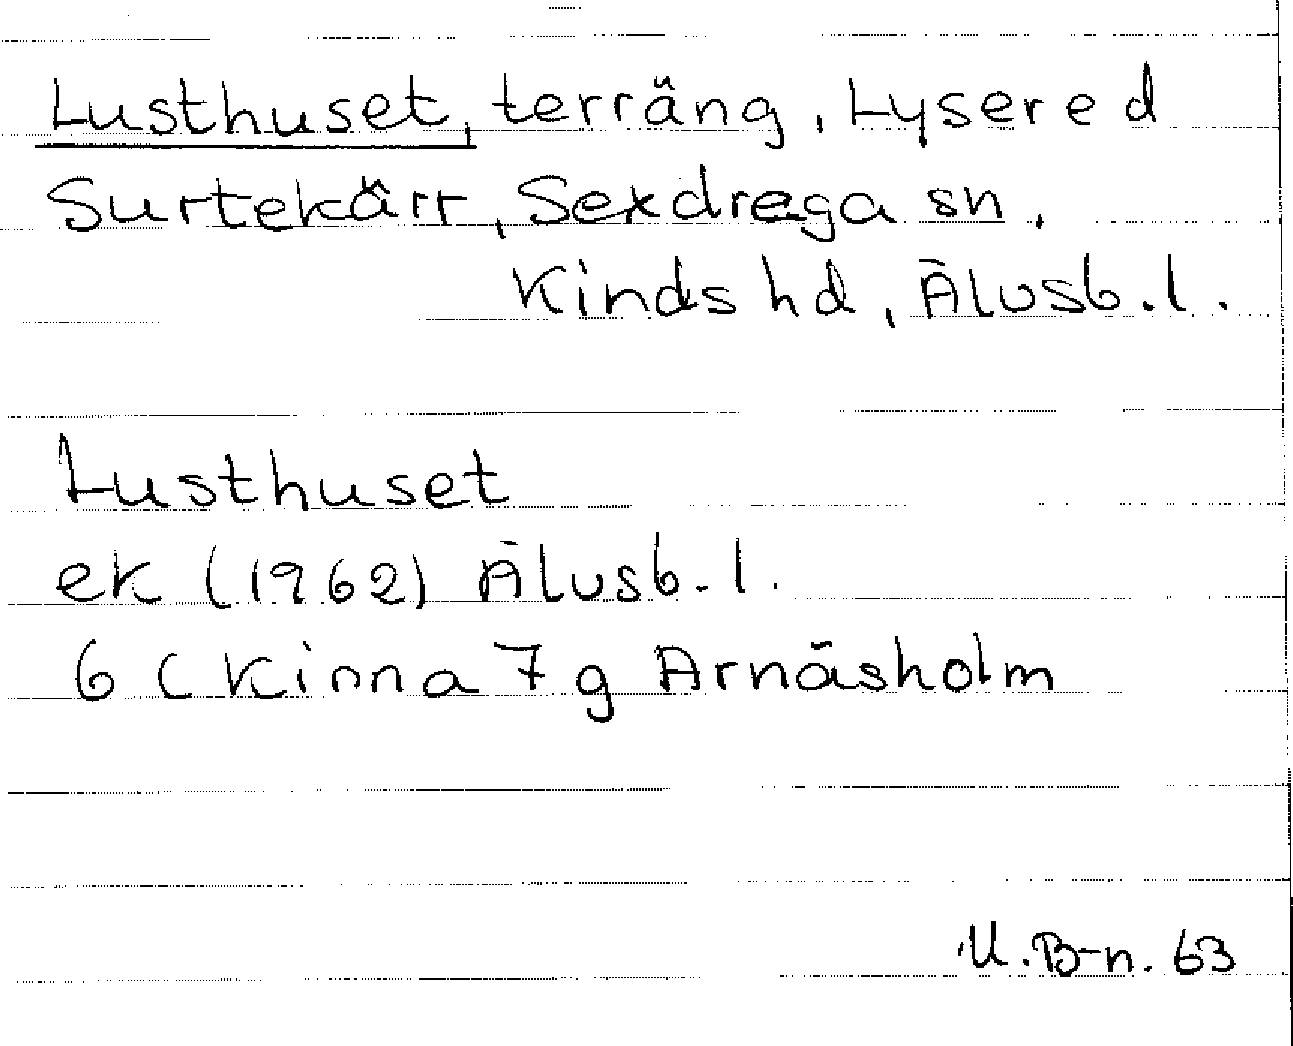 Lusthuset, terräng, Lysered
Surtekärr, Sexdrega sn,
Kinds hd, Älvsb. l.
Lusthuset
ek (1962) Älvsb. l.
6 C Kinna 7 g Arnäsholm
U. B-n. 63